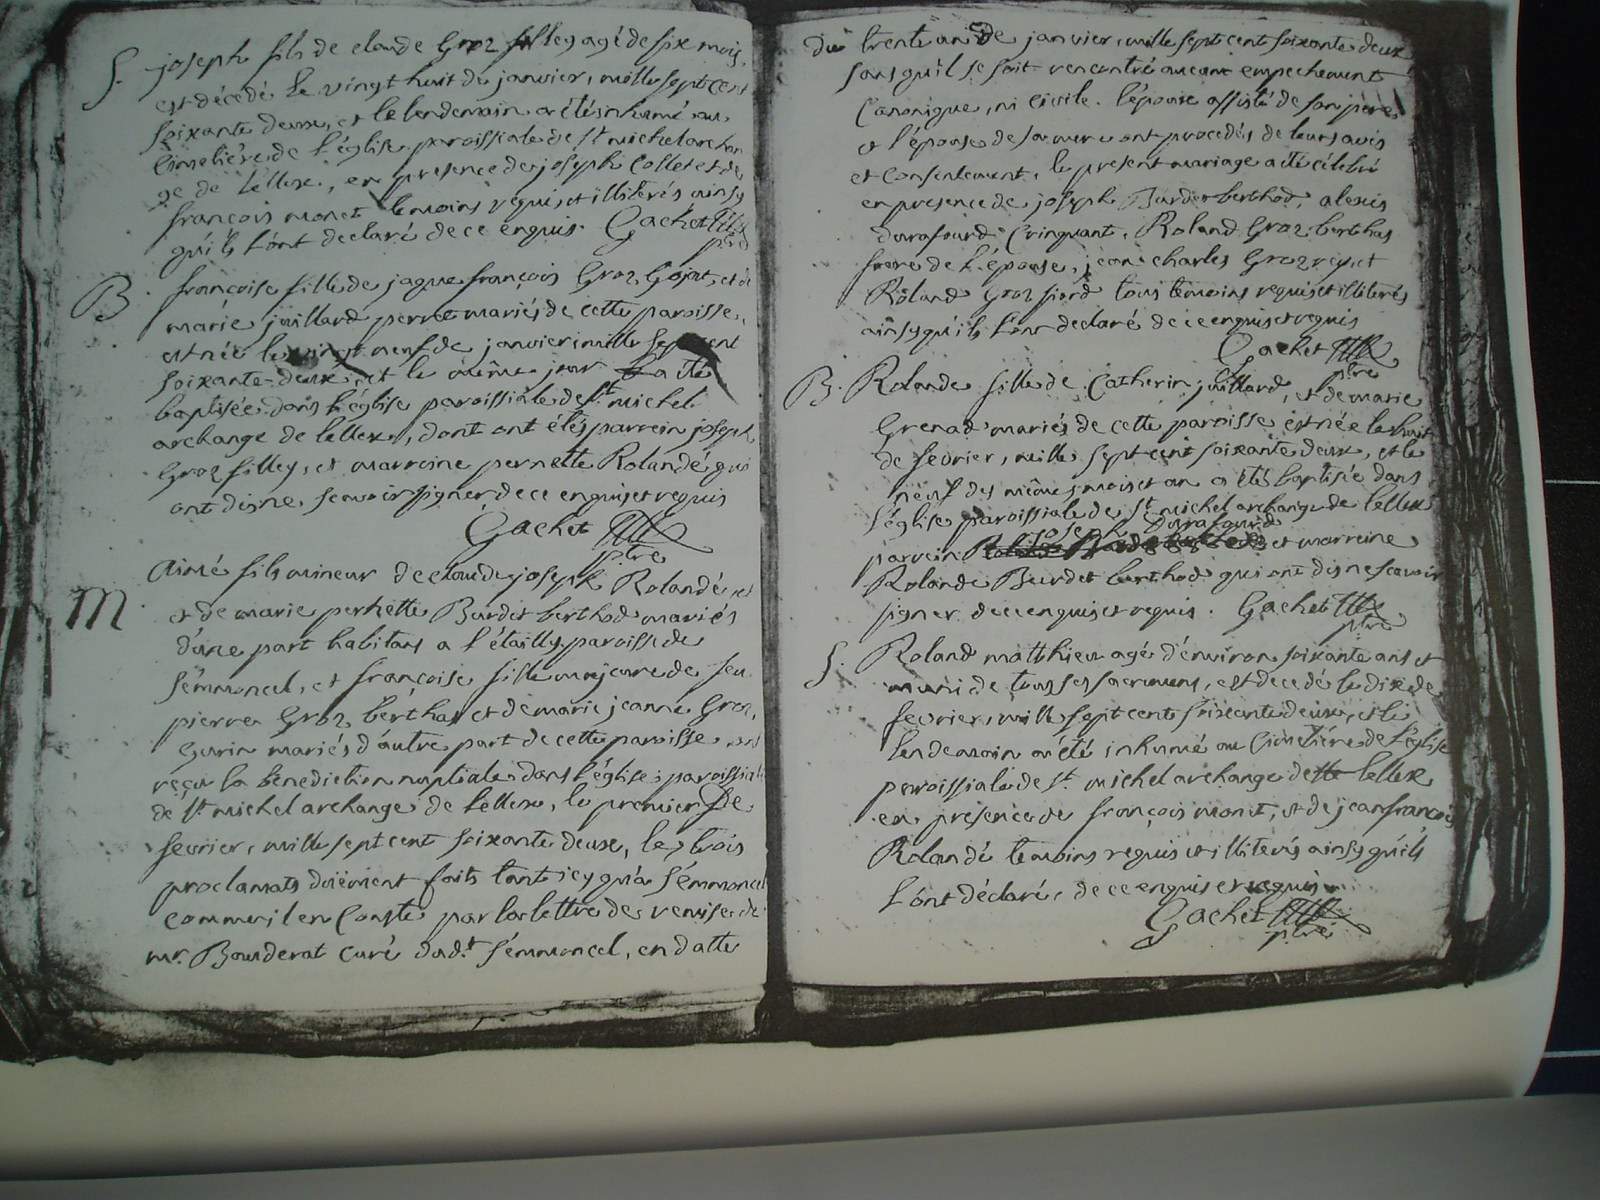 S. joseph fils de claude Groz filley agé de six mois,
est décédé le vingt huit de janvier, mille sept cent
soixante deux, et le lendemain a été inhumé au
Cimetière de l'église paroissiale de St michel archan
ge de lellex, en presence de joseph Collet et de
françois monet temoins requis et illiterés ainsy
qu'ils l'ont declaré de ce enquis. Gachet
ptre
B. françoise fille de jaque françois Groz Gojat, et de
marie juillard perret mariés de cette paroisse,
est née le vingt neuf de janvier mille sept cent
soixante deux, et le même jour a été
baptisée dans l'église paroissiale de St michel
archange de lellex, dont ont étés parrein joseph
Groz filley, et marreine pernette Rolandé qui
ont dis ne scavoir signer de ce enquis et requis
Gachet
ptre
M Aimé fils mineur de claude joseph Rolandé
et de marie pernette Burdet berthod mariés
d'une part habitans a l'étailly paroisse de
sémmoncel, et françoise fille majeure de feu
pierre Groz berthas et de marie jeanne Groz,
Gurin mariés d'autre part de cette paroisse ont
reçu la benediction nuptiale dans l'église paroissiale
de St michel archange de lellex, le premier de
fevrier, mille sept cent soixante deux, les trois
proclamats duëment faits tant icy qu'à sémmoncel
comme il en Conste par la lettre de remise de
mr. Bouderat curé dud.t sémmoncel, en datte
du trente un de janvier, mille sept cent soixante deux
sans qu'il se soit rencontré aucun empechement
Canonique, ni Civile. l'epoux assisté de son pere
et l'épouse de sa mere ont procedés de leurs avis
et consentement, le present mariage a été célébré
en presence de joseph Burdet berthod, alexis
durafourd Crinquant, Roland Groz berthas
frere de l'épouse, jean charles Groz rey, et
Roland Groz fiord tous temoins requis et illiterés
ainsy qu'ils l'ont declaré de ce enquis et requis
Gachet
ptre
B. Rolande fille de Catherin juillard, et de marie
Grenad mariés de cette paroisse est née le huit
de fevrier, mille sept cent soixante deux, et le
neuf des mêmes mois et an a étés baptisée dans
l'église paroissiale de St michel archange de lellex
joseph Durafourd
parrein et marreine
Rolande Burdet berthod qui ont dis ne scavoir
signer de ce enquis et requis. Gachet
ptre
S. Roland matthieu agé d'environ soixante ans et
muni de tous ses sacremens, est decedé le dix de
fevrier, mille sept cent soixante deux, et le
lendemain a été inhumé au Cimetière de l'église
paroissiale de St. michel archange de lellex
en présence de françois monet, et de jean françois
Rolandé temoins requis et illiterés ainsy qu'ils
l'ont déclaré, de ce enquis et requis
Gachet
ptre